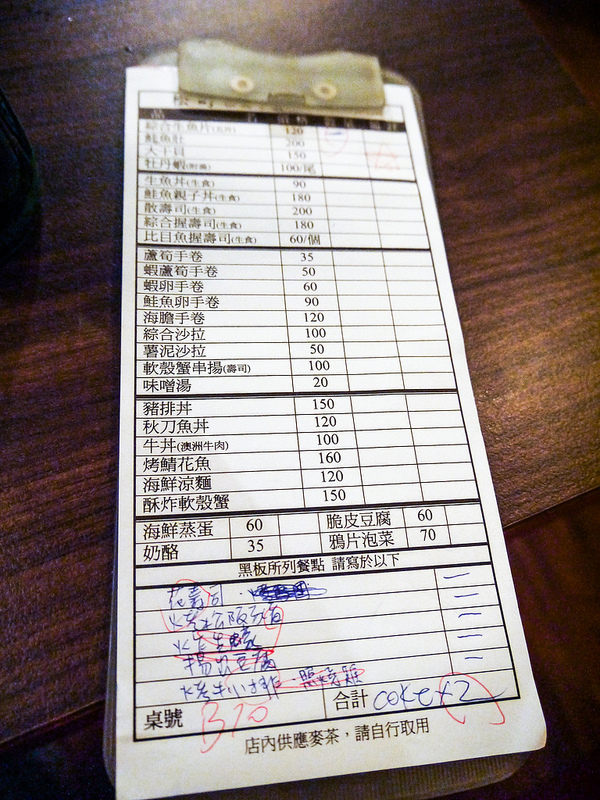 品 名 價格
綜合生魚片 120 一
鮭魚肚 200
大干貝 150
牡丹蝦 100/尾
生魚丼(生食) 90
鮭魚親子丼(生食) 180
散壽司(生食) 200
綜合握壽司(生食) 180
比目魚握壽司(生食) 60/個
蘆筍手卷 35
蝦蘆筍手卷 50
蝦卵手卷 60
鮭魚卵手卷 90
海膽手卷 120
綜合沙拉 100
薯泥沙拉 50
軟殼蟹串揚(壽司) 100
味噌湯 20
豬排丼 150
秋刀魚丼 120
牛丼(澳洲牛肉) 100
烤鯖花魚 160
海鮮涼麵 120
酥炸軟殼蟹 150
海鮮蒸蛋 60 脆皮豆腐 60
奶酪 35 鴉片泡菜 70
黑板所列餐點 請寫於以下
花壽司 一
一
一
揚出豆腐 一
桌號 B10 合計 coke x2
店內供應麥茶，請自行取用